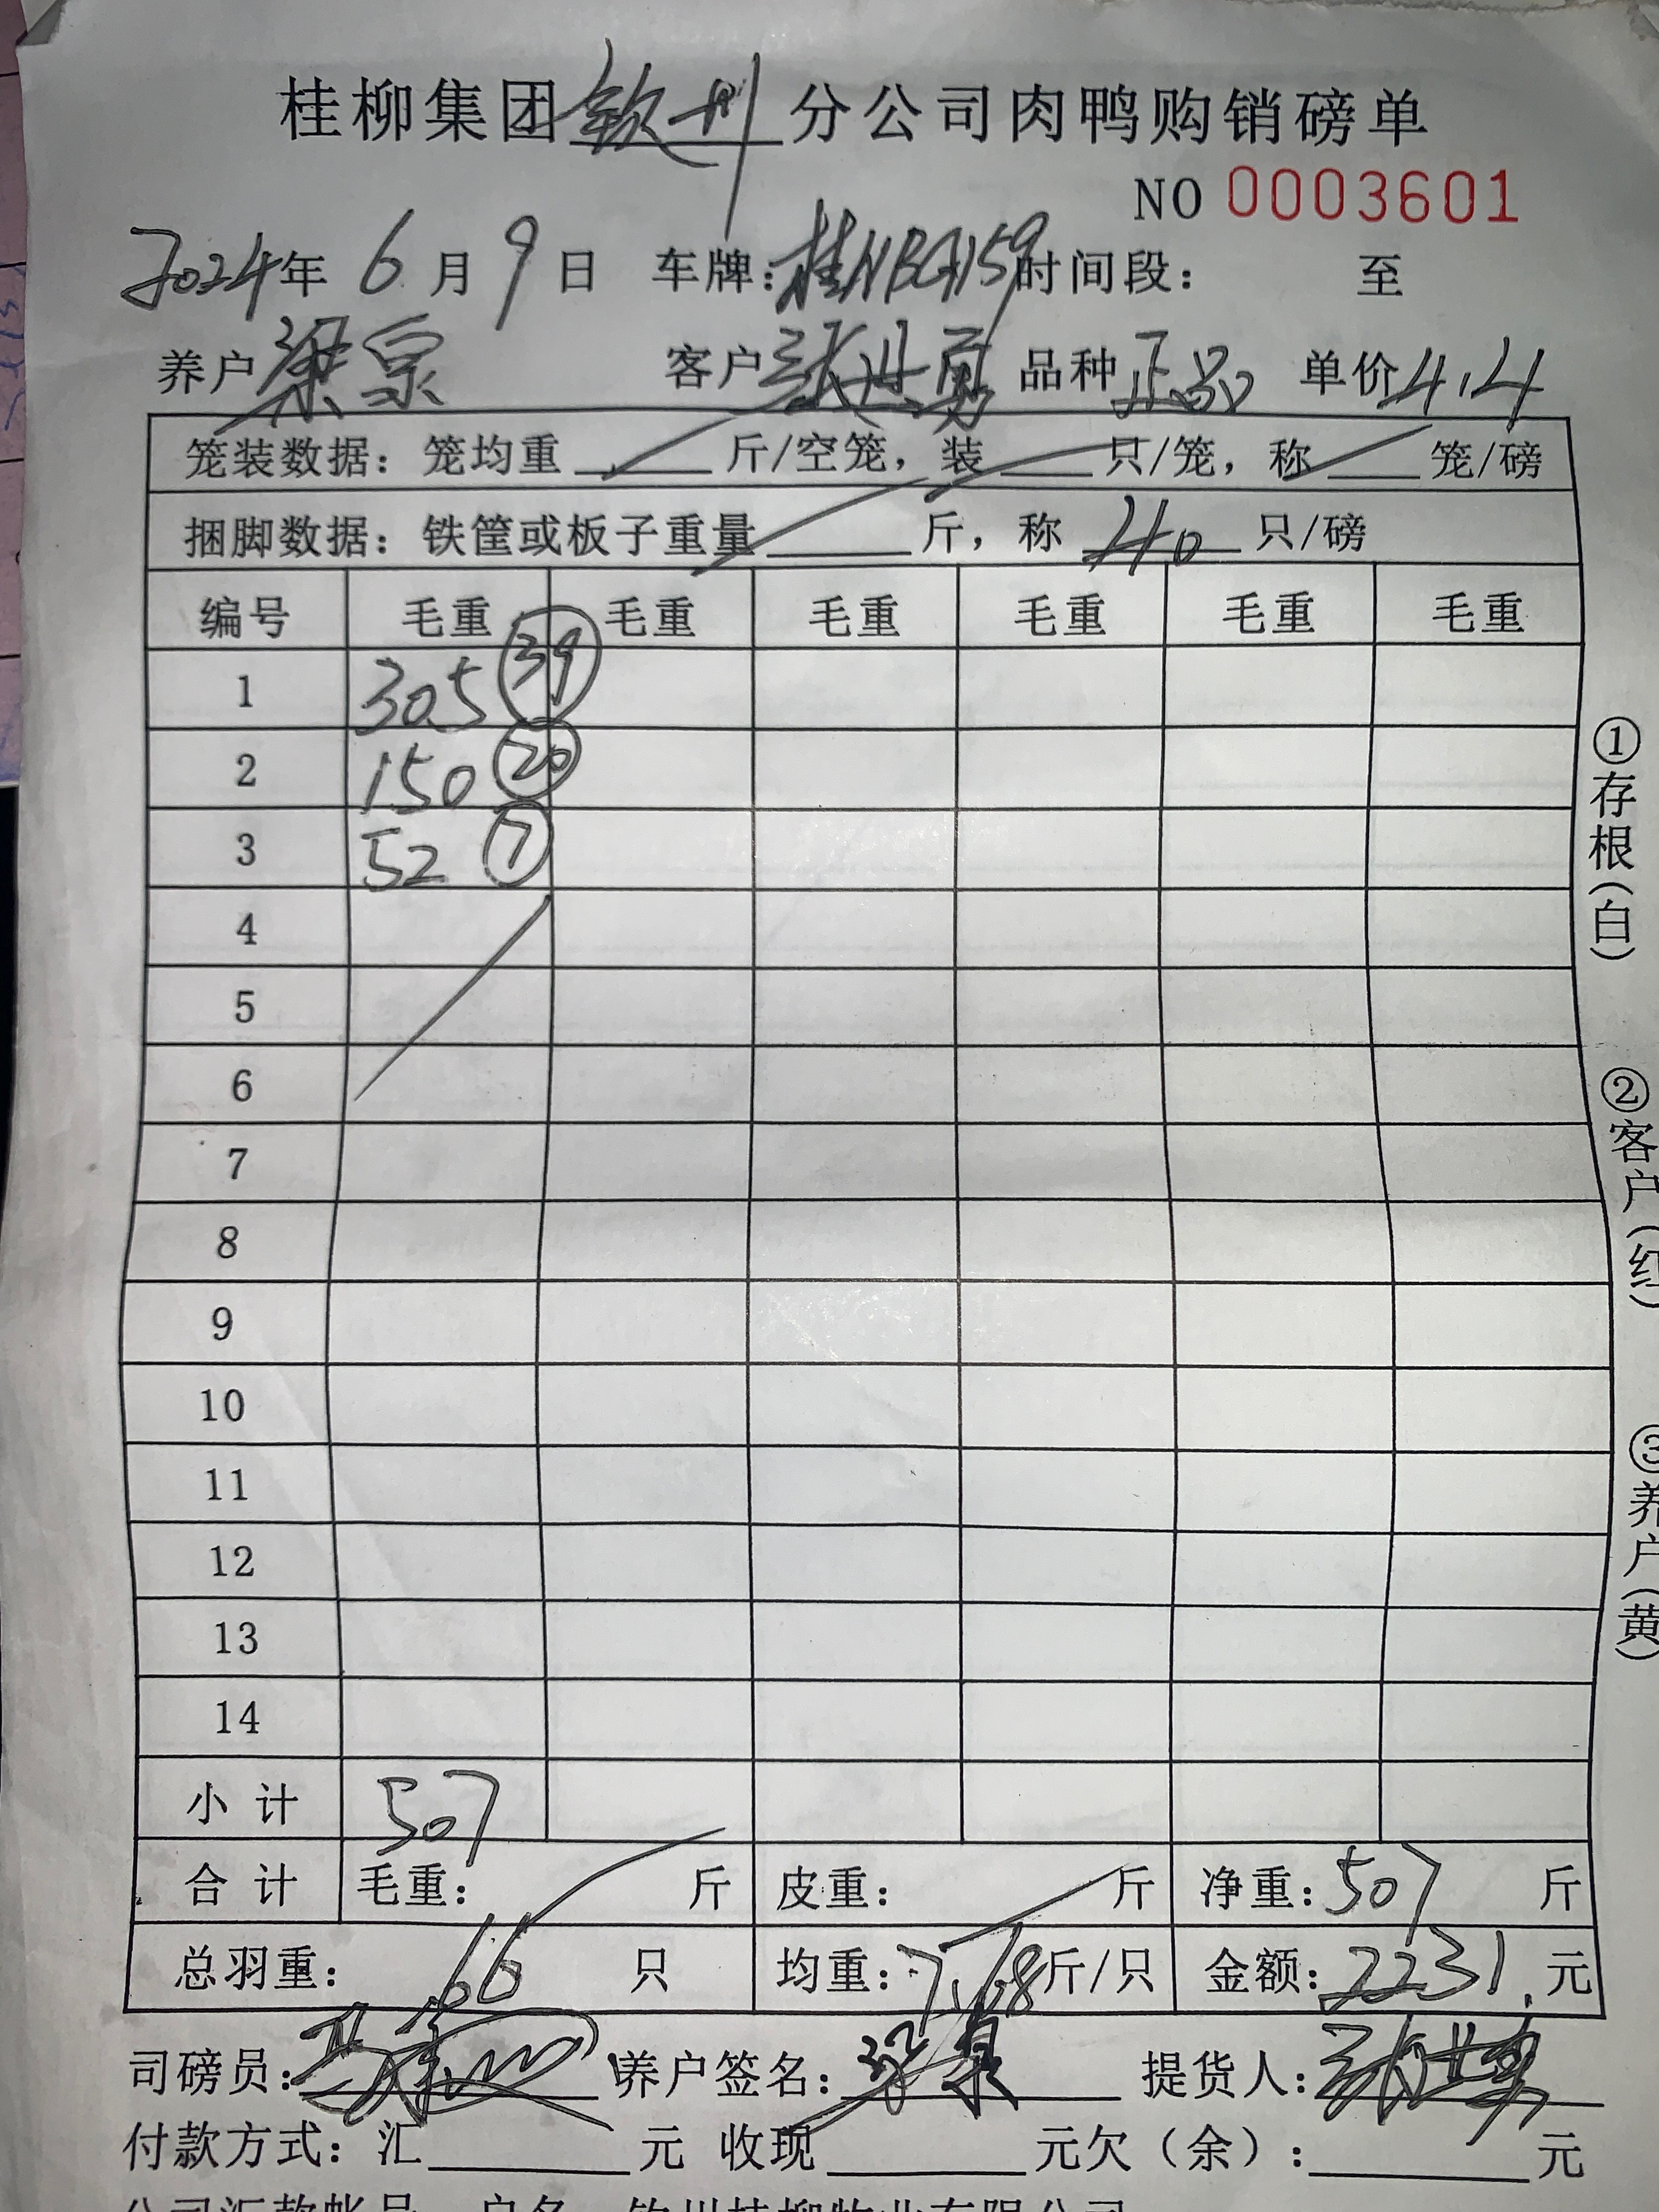 桂柳集团钦州分公司肉鸭购销磅单
NO 0003601
2024年 6月 9日 车牌:桂NBG159时间段: 至
养户梁宗 客户张世勇 品种正品 单价4.4
笼装数据: 笼均重 斤/空笼, 装 只/笼, 称 笼/磅
捆脚数据: 铁筐或板子重量 斤, 称 40 只/磅
编号 毛重 毛重 毛重 毛重 毛重 毛重
1 305 39
2 150 20
3 52 7
4
5
6
7
8
9
10
11
12
13
14
小计 507
合计 毛重: 斤 皮重: 斤 净重:507 斤
总羽重: 66 只 均重:7.68斤/只 金额:2231.元
司磅员: 养户签名: 提货人:
付款方式: 汇 元 收现 元欠(余): 元
公司汇款帐号 户名 钦州桂柳牧业有限公司
①存根(白)
②客户(红)
③养户(黄)